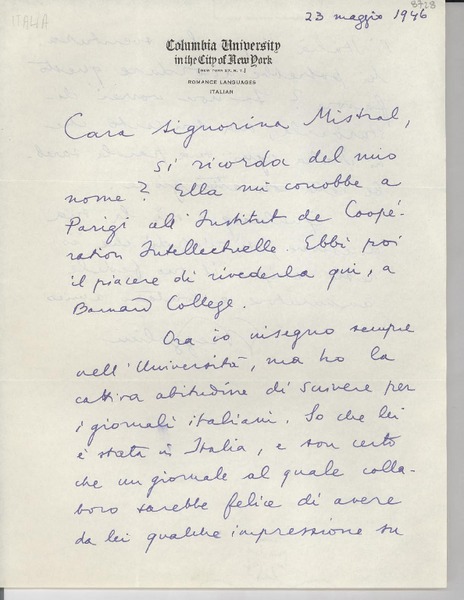 ITALIA
8728
23 maggio 1946
Columbia University
in the City of New York
[NEW YORK 27, N. Y.]
ROMANCE LANGUAGES
ITALIAN
Cara Signorina Mistral,
si ricorda del mio
nome? Ella mi conobbe a
Parigi all'Institut de Coopé-
ration Intellectuelle. Ebbi poi
il piacere di rivederla qui, a
Barnard College.
Ora io insegno sempre
nell'Università, ma ho la
cattiva abitudine di scrivere per
i giornali italiani. So che lei
è stata in Italia, e son certo
che un giornale al quale colla-
boro sarebbe felice di avere
da lei qualche impressione su